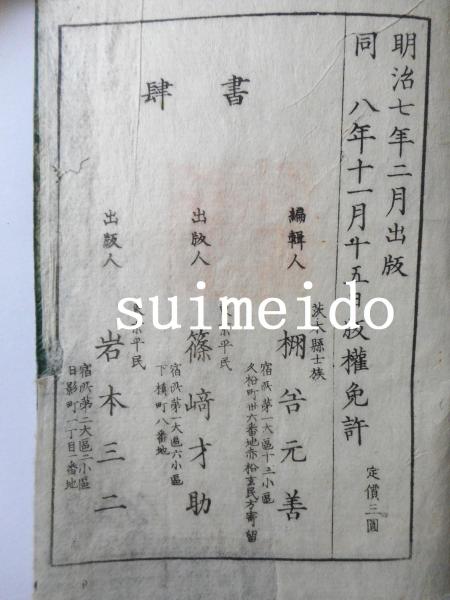 明治七年二月出版
同 八年十一月廿五日版權免許
定價三圓
書肆
編輯人
茨木縣士族
棚谷元善
宿所第一大區十三小區
久松町卅六番地赤松玄民方寄留
出版人
東京平民
篠﨑才助
宿所第一大區六小區
下槙町八番地
出版人
東京平民
岩本三二
宿所第二大區二小區
日影町一丁目一番地
suimeido